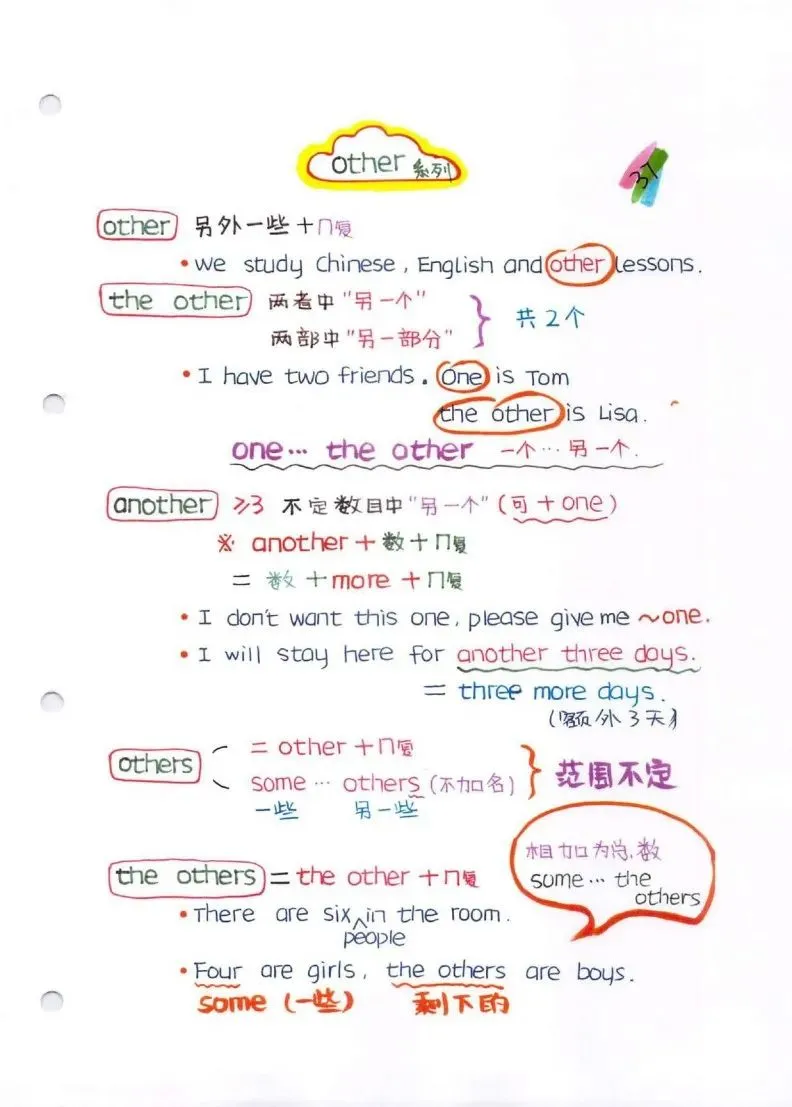 other 系列
37
other 另外一些+∩复
• we study Chinese, English and other lessons.
the other 两者中"另一个"
两部中"另一部分"
共2个
• I have two friends. One is Tom
the other is Lisa.
one… the other 一个…另一个.
another ≥3 不定数目中"另一个"(可+one)
※ another+数+∩复
= 数+more+∩复
• I don't want this one, please give me ~one.
• I will stay here for another three days.
= three more days.
(额外3天)
others = other+∩复
some… others (不加名)
一些 另一些
范围不定
相加为总数
some… the
others
the others = the other+∩复
• There are six in the room.
people
• Four are girls, the others are boys.
some (一些) 剩下的